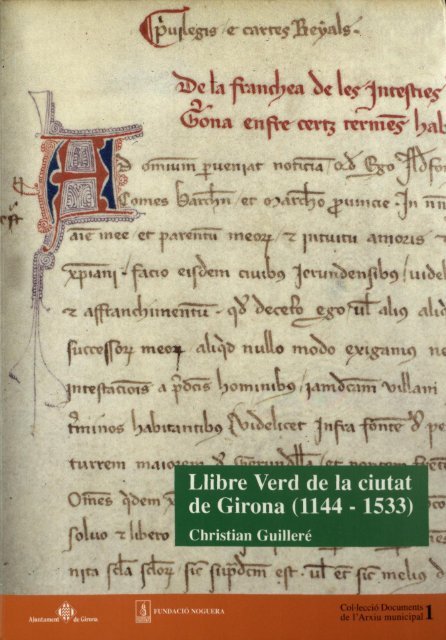 Priuilegis e cartes Reyals
De la franchea de les Intesties
Gona enfre certz termes hab
omnium perueniat noticia qd Ego Ildfon
Comes Barchn et Marchio prouincie In
aie mee et parentu meor intuitu amoris
xpiani facio eisdem ciuibus Jerundensibus uidel
affranchimentu qd decetero ego ul alius aliq
successor meor aliqd nullo modo exigamus
Intestacions a pdcis hominibus jamdcam villam
tminos habitantibus Videlicet Infra fonte
turrem maiorem
Omes
soluo libero
nita scla sclor sic supdcm est ul et sic melius
Llibre Verd de la ciutat
de Girona (1144 - 1533)
Christian Guilleré
Ajuntament de Girona
FUNDACIÓ NOGUERA
Col·lecció Documents
de l'Arxiu municipal 1